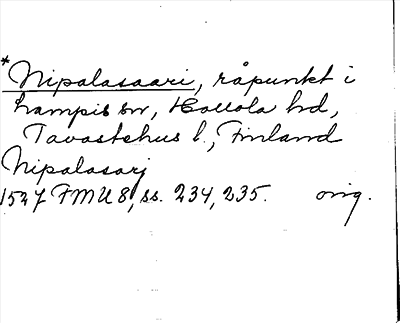 *Nipalasaari, råpunkt i
Lampis sn, Hollola hd,
Tavastehus l., Finland
Nipalasarj
1527 FMU 8, ss. 234, 235. orig.